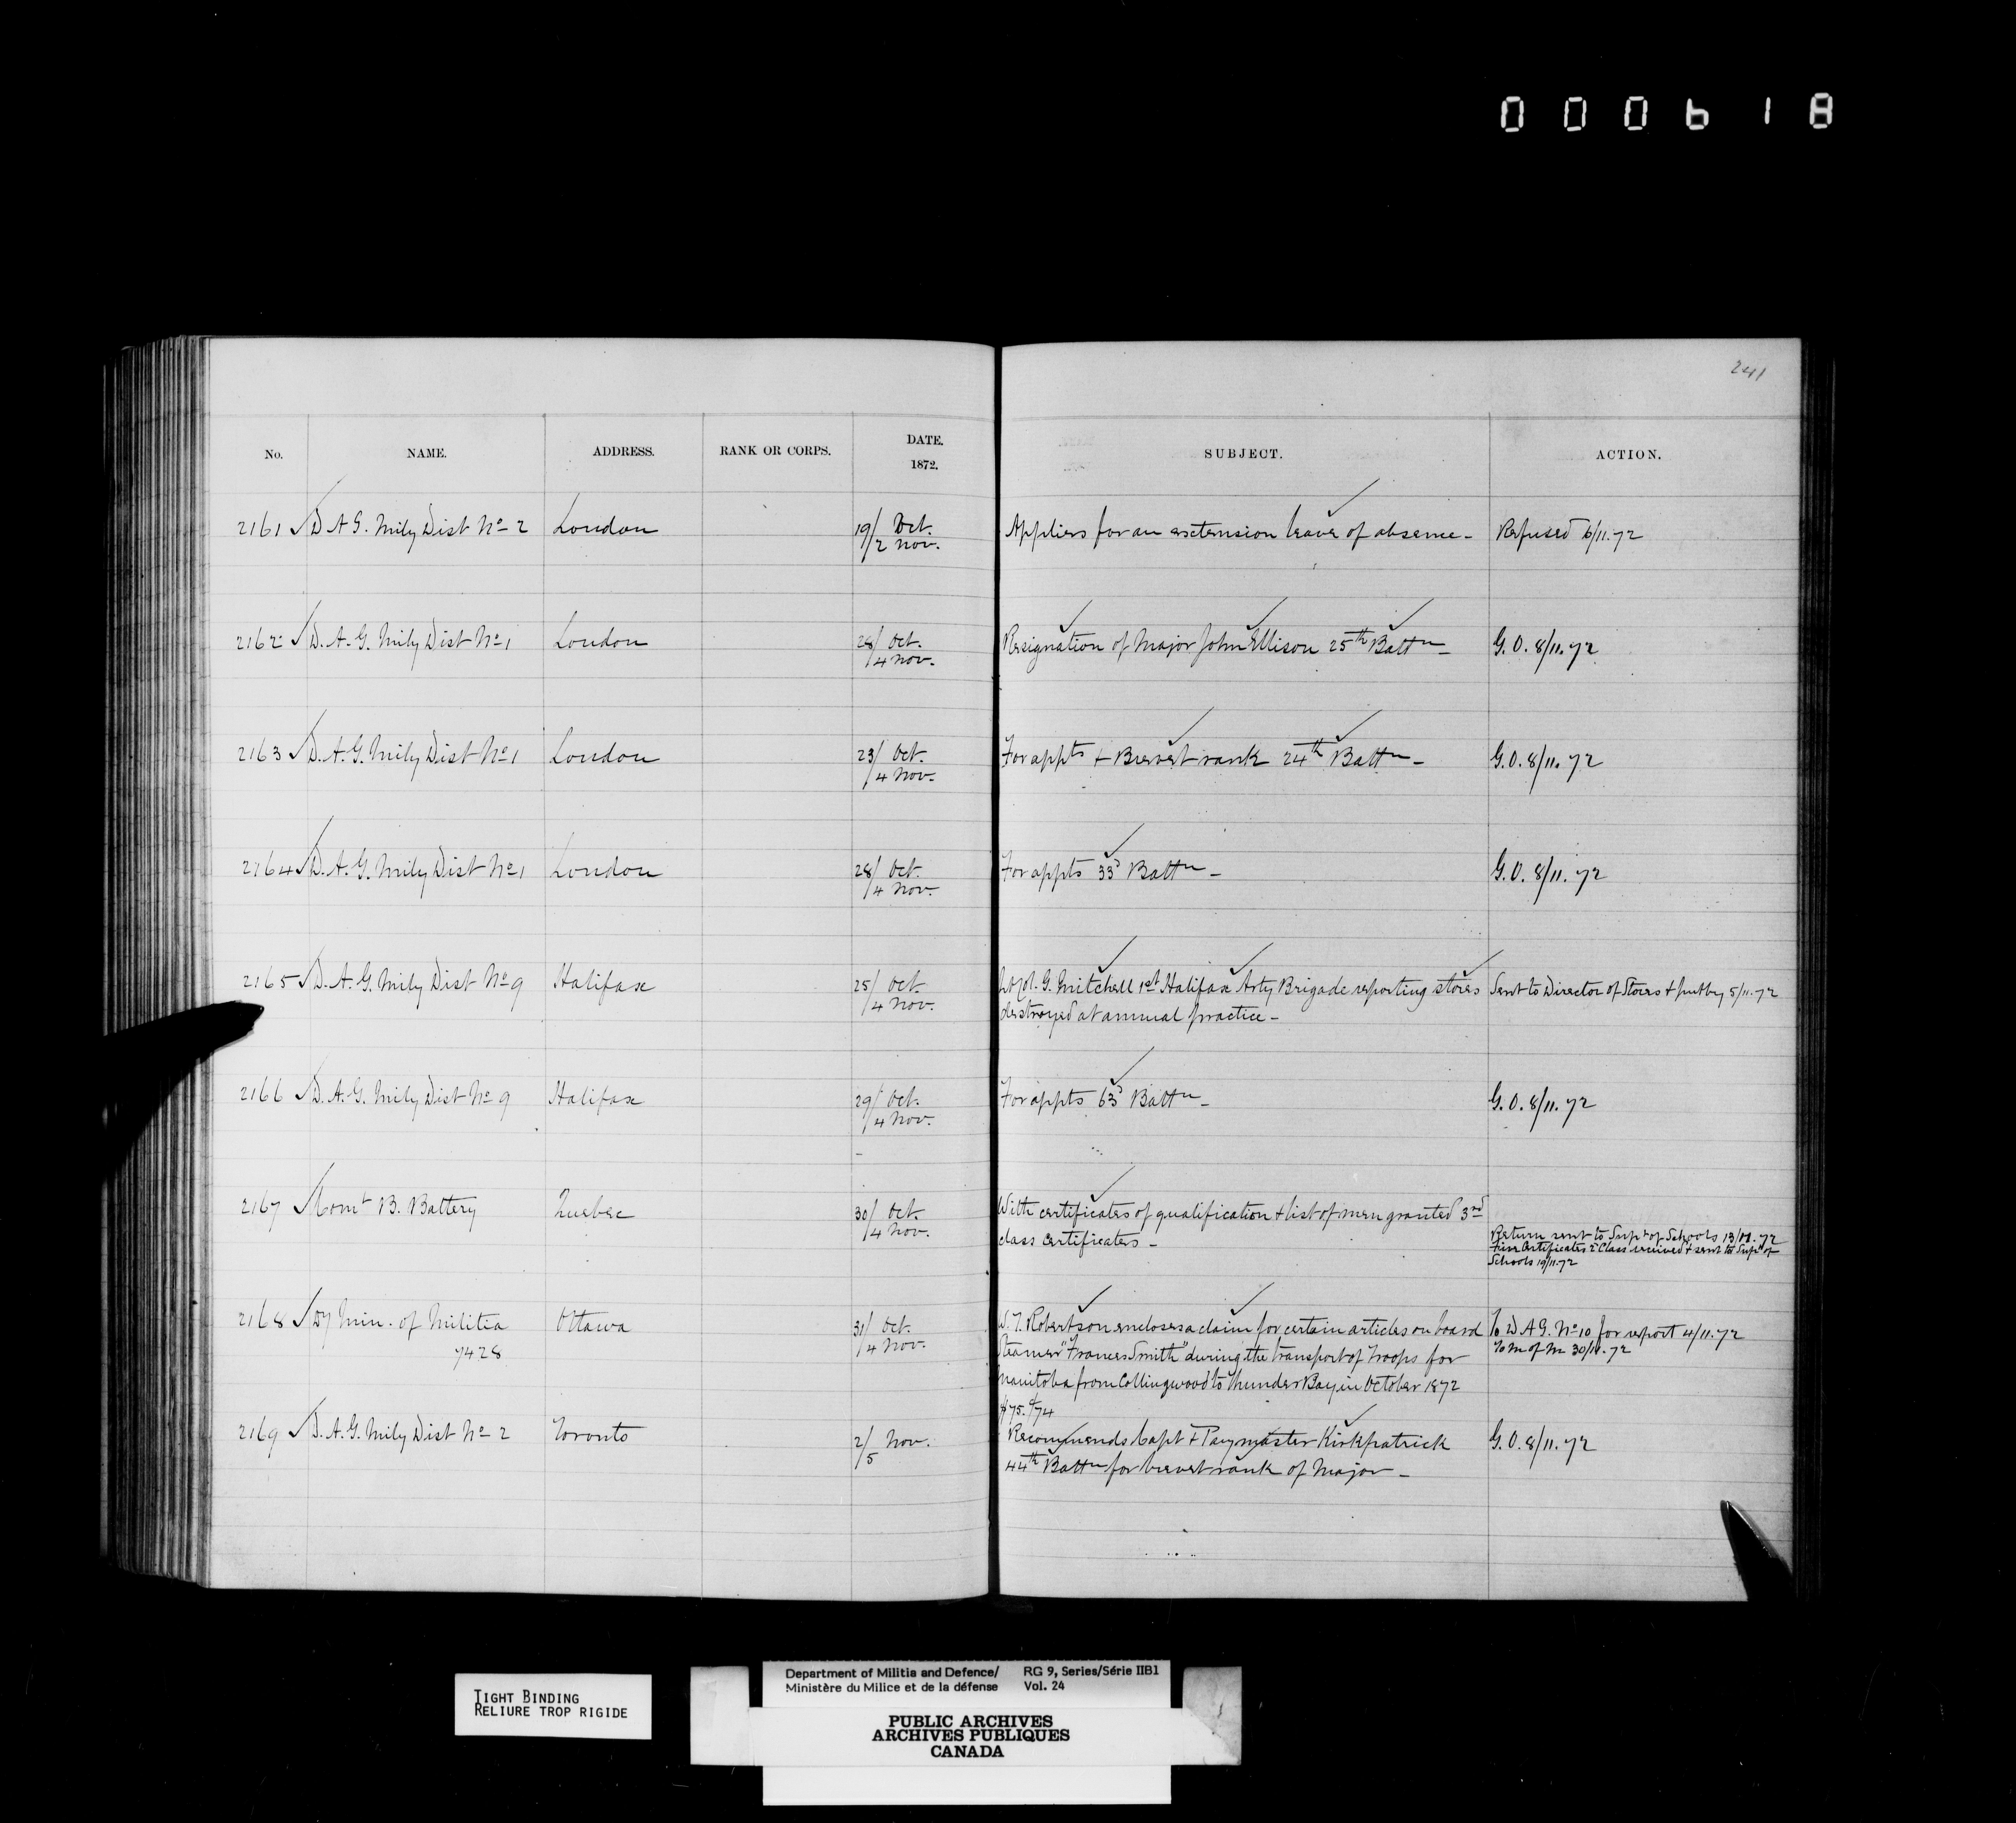 000618
241
No. NAME. ADDRESS. RANK OR CORPS. DATE. 1872. SUBJECT. ACTION.
2161 D A G. Mily Dist No 2 London 19/ Oct. Applies for an extension leave of absence - Refused 6/11.72
/2 Nov.
2162 D. A. G. Mily Dist No 1 London 28/ Oct. Resignation of Major John Ellison 25th Battn - G. O. 8/11.72
/4 Nov.
2163 D. A. G. Mily Dist No 1 London 23/ Oct. For appts + Brevet rank 24th Battn - G. O. 8/11.72
/4 Nov.
2164 D. A. G. Mily Dist No 1 London 28/ Oct. For appts 33d Battn - G. O. 8/11.72
/4 Nov.
2165 D. A. G. Mily Dist No 9 Halifax 25/ Oct. Lt Col. G. Mitchell 1st Halifax Arty Brigade reporting stores Sent to Director of Stores + put by 5/11.72
/4 Nov. destroyed at annual practice -
2166 D. A. G. Mily Dist No 9 Halifax 29/ Oct. For appts 63d Battn - G. O. 8/11.72
/4 Nov.
2167 Comt B. Battery Quebec 30/ Oct. With certificates of qualification + list of men granted 3rd
/4 Nov. class certificates -
Return sent to Supt of Schools 13/11.72
Five Certificates 2 Class received + sent to Supt of
Schools 19/11.72
2168 Dy Min. of Militia Ottawa 31/ Oct. W. T. Robertson encloses a claim for certain articles on board To D A G. No 10 for report 4/11.72
7428 /4 Nov. Steamer "Frances Smith" during the transport of Troops for To M of M 30/11.72
Manitoba from Collingwood to Thunder Bay in October 1872
$75.74
2169 D. A. G. Mily Dist No 2 Toronto 2/ Nov. Recommends Capt + Paymaster Kirkpatrick G. O. 8/11.72
/5 44th Battn for brevet rank of Major -
TIGHT BINDING
RELIURE TROP RIGIDE
Department of Militia and Defence/ RG 9, Series/Série IIB1
Ministère du Milice et de la défense Vol. 24
PUBLIC ARCHIVES
ARCHIVES PUBLIQUES
CANADA